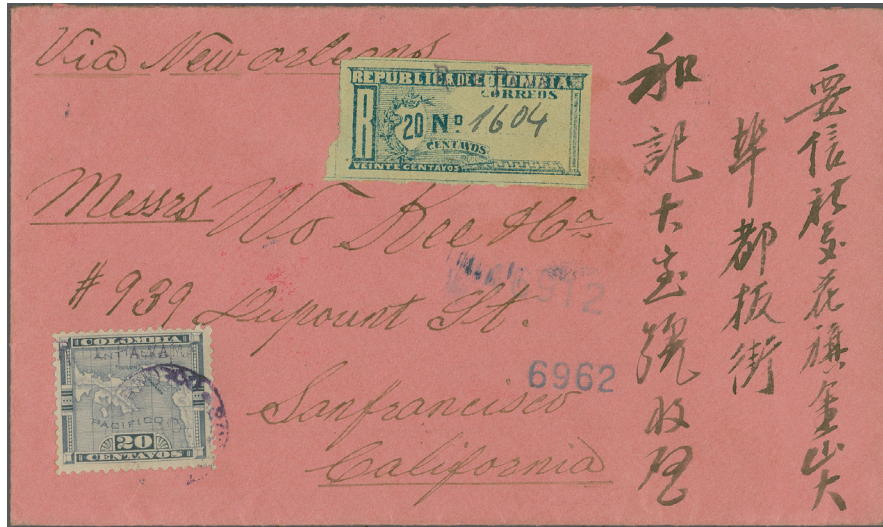 Via New orleans
R
REPUBLICA DE COLOMBIA
CORREOS
R 20 Nº 1604
CENTAVOS
VEINTE CENTAVOS
Messrs Wo Kee &Ca
# 939 Dupount St.
Sanfrancisco
California
6962
COLOMBIA
PACIFICO
20
CENTAVOS
要信祈交花旗金山大
埠都板街
和記大宝號收啓